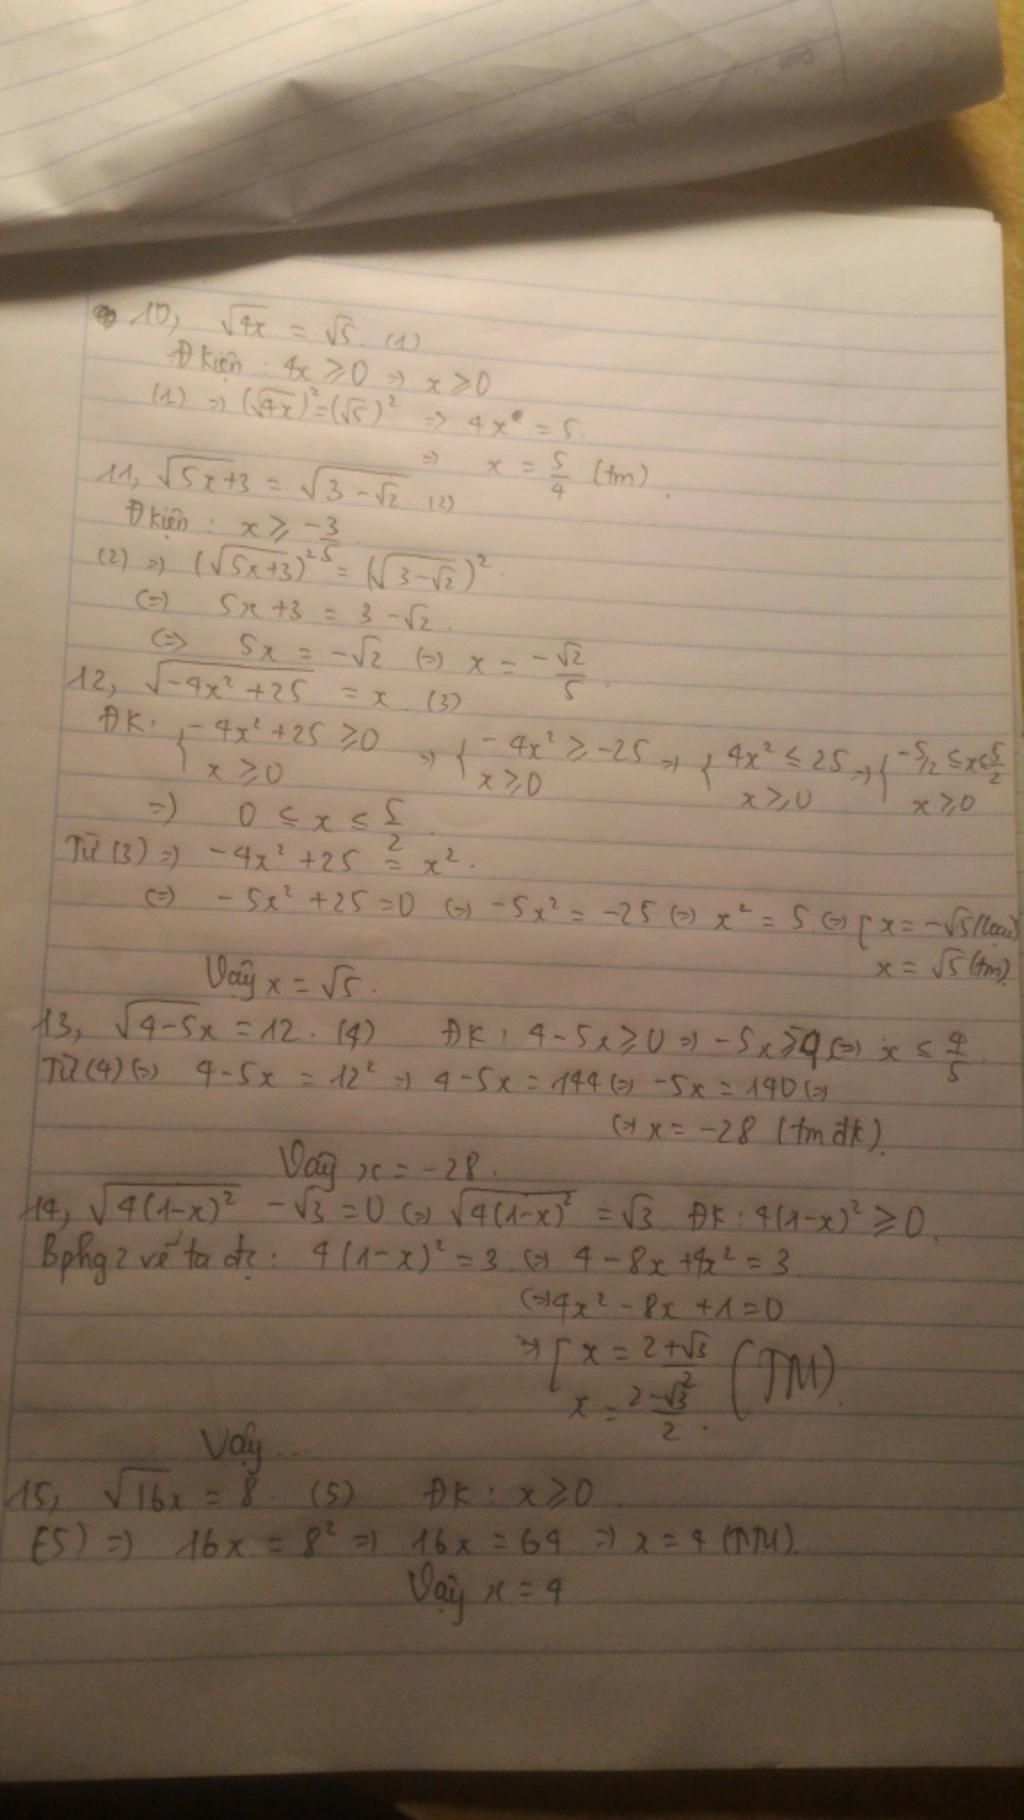 10, √4x = √5. (1)
Đkiện : 4x ≥ 0 => x ≥ 0
(1) => (√4x)² = (√5)² => 4x = 5.
=> x = 5/4 (tm).
11, √5x+3 = √3-√2 (2)
Đkiện : x ≥ -3/5
(2) => (√5x+3)² = (√3-√2)².
<=> 5x+3 = 3-√2.
<=> 5x = -√2 <=> x = -√2/5.
12, √-4x²+25 = x. (3)
ĐK: { -4x²+25 ≥ 0 => { -4x² ≥ -25 => { 4x² ≤ 25 => { -5/2 ≤ x ≤ 5/2
x ≥ 0 x ≥ 0 x ≥ 0 x ≥ 0
=> 0 ≤ x ≤ 5/2.
Từ (3) => -4x²+25 = x².
<=> -5x²+25=0 <=> -5x² = -25 <=> x² = 5. <=> [ x = -√5 (loại)
x = √5 (tm)
Vậy x = √5.
13, √4-5x = 12. (4) ĐK : 4-5x ≥ 0 => -5x ≥ 4 <=> x ≤ 4/5.
Từ (4) <=> 4-5x = 12² => 4-5x = 144 <=> -5x = 140 <=>
<=> x = -28 (tm đk).
Vậy x = -28.
14, √4(1-x)² - √3 = 0 <=> √4(1-x)² = √3. ĐK : 4(1-x)² ≥ 0.
Bphg 2 vế ta đc : 4(1-x)² = 3. <=> 4-8x+4x² = 3
<=> 4x²-8x+1=0
=> [ x = 2+√3/2 (TM).
x = 2-√3/2.
Vậy...
15, √16x = 8. (5) ĐK : x ≥ 0.
(5) => 16x = 8² => 16x = 64 => x = 4 (TM).
Vậy x = 4